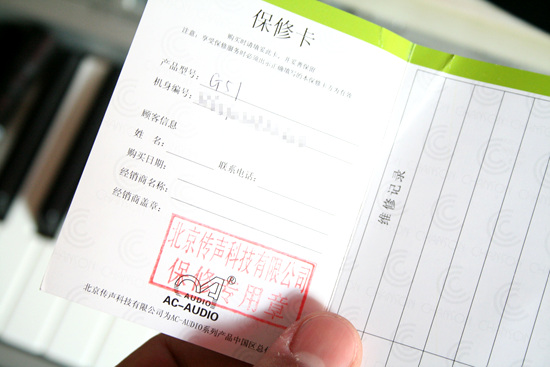 保修卡
购买时请填妥此卡，并妥善保留
注意：享受保修服务时必须出示正确填写的本保修卡为有效
产品型号：G51
机身编号：
顾客信息
姓 名：
购买日期： 联系电话：
经销商名称：
经销商盖章：
北京传声科技有限公司
保修专用章
AUDIO
®
AC-AUDIO
北京传声科技有限公司为AC-AUDIO系列产品中国区总
维修记录